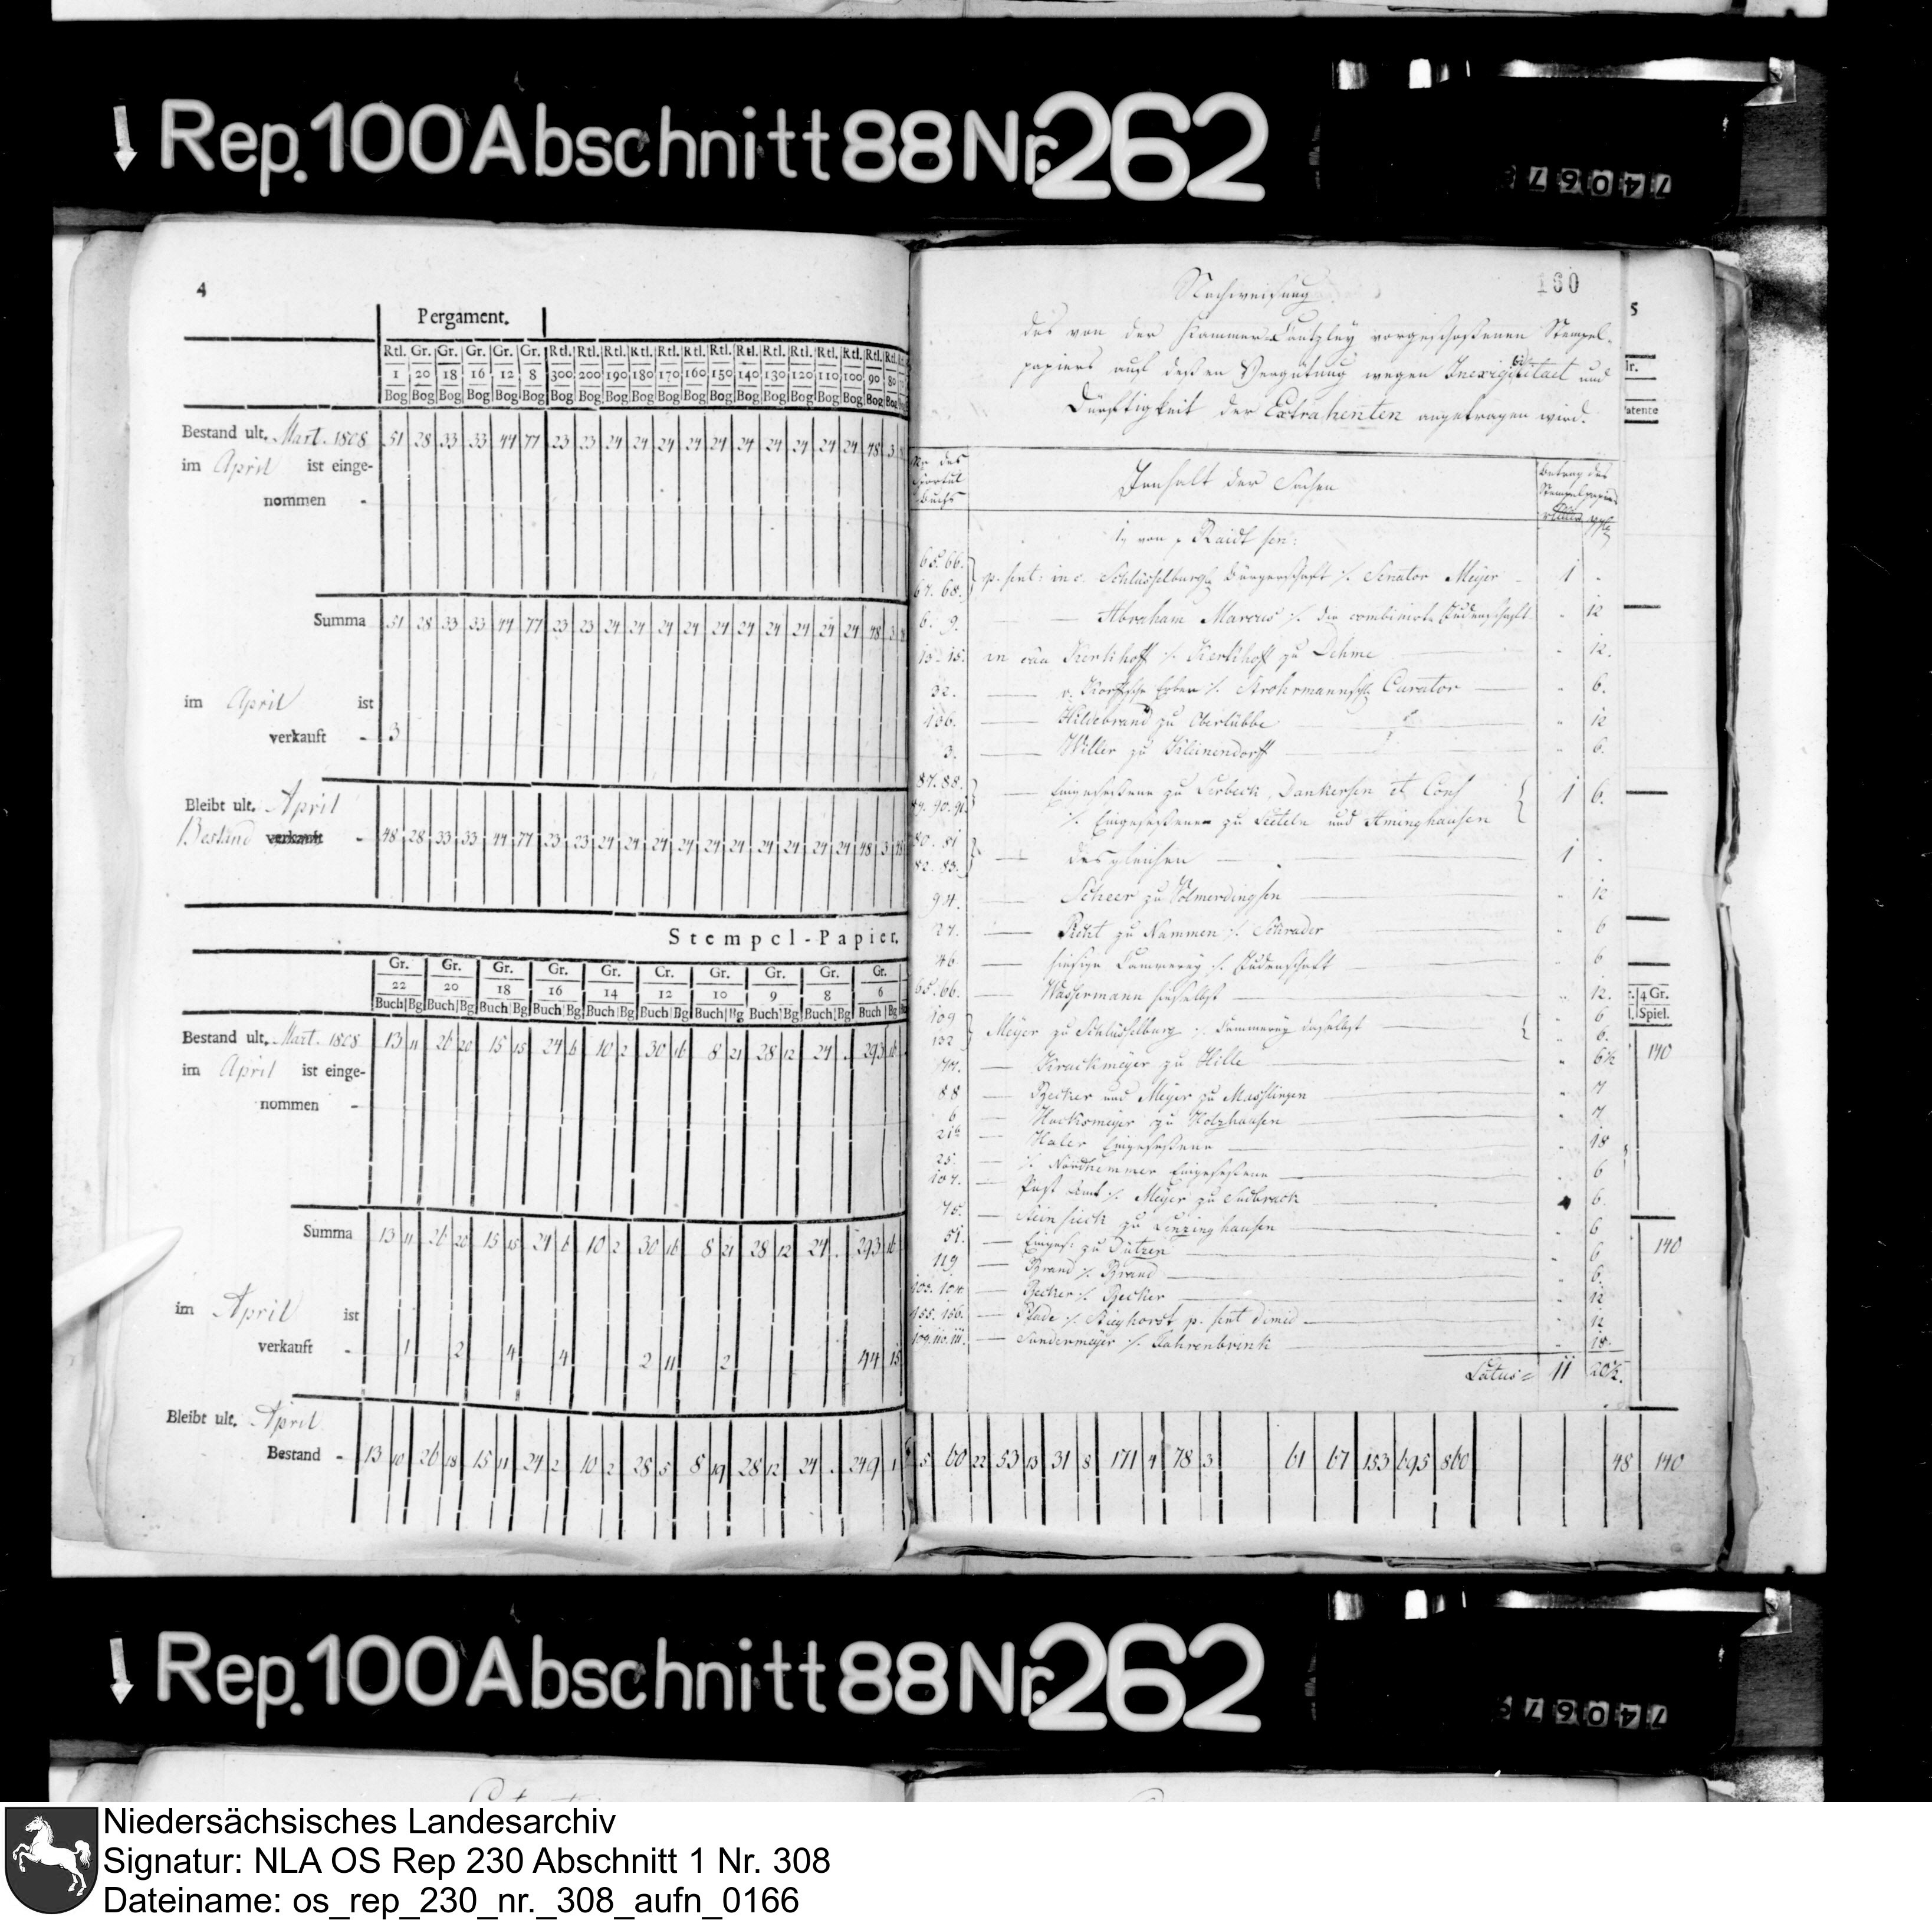 ↓ Rep. 100 Abschnitt 88 Nr. 262
74067
4
Pergament.
Rtl. Gr. Gr. Gr. Gr. Gr. Rtl. Rtl. Rtl. Rtl. Rtl. Rtl. Rtl. Rtl. Rtl. Rtl. Rtl. Rtl. Rtl. Rtl.
1 20 18 16 12 8 300 200 190 180 170 160 150 140 130 120 110 100 90 80
Bog Bog Bog Bog Bog Bog Bog Bog Bog Bog Bog Bog Bog Bog Bog Bog Bog Bog Bog Bog
Bestand ult. Mart. 1808 51 28 33 33 44 77 23 23 24 24 24 24 24 24 24 24 24 24 48 3
im April ist einge-
nommen -
Summa 51 28 33 33 44 77 23 23 24 24 24 24 24 24 24 24 24 24 48 3
im April ist
verkauft - 3
Bleibt ult. April
Bestand verkauft - 48 28 33 33 44 77 23 23 24 24 24 24 24 24 24 24 24 24 48 3
Stempel-Papier.
Gr. Gr. Gr. Gr. Gr. Gr. Gr. Gr. Gr. Gr.
22 20 18 16 14 12 10 9 8 6
Buch Bg Buch Bg Buch Bg Buch Bg Buch Bg Buch Bg Buch Bg Buch Bg Buch Bg Buch Bg
Bestand ult. Mart. 1808 13 11 26 20 15 15 24 6 10 2 30 16 8 21 28 12 24 . 293 16
im April ist einge-
nommen -
Summa 13 11 26 20 15 15 24 6 10 2 30 16 8 21 28 12 24 . 293 16
im April ist
verkauft - 1 2 4 4 2 11 2 44 15
Bleibt ult. April
Bestand - 13 10 26 18 15 11 24 2 10 2 28 5 8 19 28 12 24 . 249 1
160
Nachweisung
des von der Kammer-Cantzley vorgeschossenen Stempel-
papiers auf dessen Vergütung wegen Inexigibilitaet und
Dürftigkeit der Extrahenten angetragen wird.
No des Sportul Buchs
Innhalt der Sachen
Betrag des Stempelpapiers
1, von p Raidt sen:
65. 66.
67. 68. p. sent: in c. Schlüsselburg Bürgerschaft ./. Senator Meyer - 1 -
6. 9. Abraham Marcus ./. die combinirte Judenschaft " 12
15. in caa Kerkhoff ./. Kerkhoff zu Dehme " 12.
32. v. Korffsche Erben ./. Strohrmannsch Curator " 6.
106. Hildebrand zu Oberlübbe " 12
3. Willer zu Kleinendorff " 6.
87. 88.
89. 90. 91. Eingesessene zu Lerbeck, Dankersen et Cons 1 6.
./. Eingesessenen zu Leeteln und Aminghausen
80. 81
82. 83. desgleichen 1 .
94. Scheer zu Volmerdingsen " 12
27. zu Nammen ./. Schrader " 6
46 hiesige Cammerey ./. Judenschaft " 6
65. 66. Wassermann hieselbst " 12.
109 " 6
132 Meyer zu Schlüsselburg ./. Cammerey daselbst " 6.
77. Krackmeyer zu Hille " 6½
88 Becker und Meyer zu Masslingen " 7
6 Hucksmeyer zu Holzhausen " 7.
Haler Eingesessene " 18
25. ./. Nordhemmer Eingesessene " 6
107. Post Amt ./. Meyer zu Sudbrack 6.
75. Steinsieck zu Lenzinghausen " 6
51. Einges: zu Dützen " 6
119 Brand ./. Brand " 6.
103. 104. Becker ./. Becker " 12
155. 156. Pfade ./. Bieghorst p. sent dimid " 12
109. 110. 111. Sundermeyer ./. Fahrenbrink " 18.
Latus = 11 20½.
5
Patente
4 Gr.
Spiel.
140
140
5 60 22 53 13 31 8 171 4 78 3 61 67 153 695 860 48 140
↓ Rep. 100 Abschnitt 88 Nr. 262
74067
Niedersächsisches Landesarchiv
Signatur: NLA OS Rep 230 Abschnitt 1 Nr. 308
Dateiname: os_rep_230_nr._308_aufn_0166